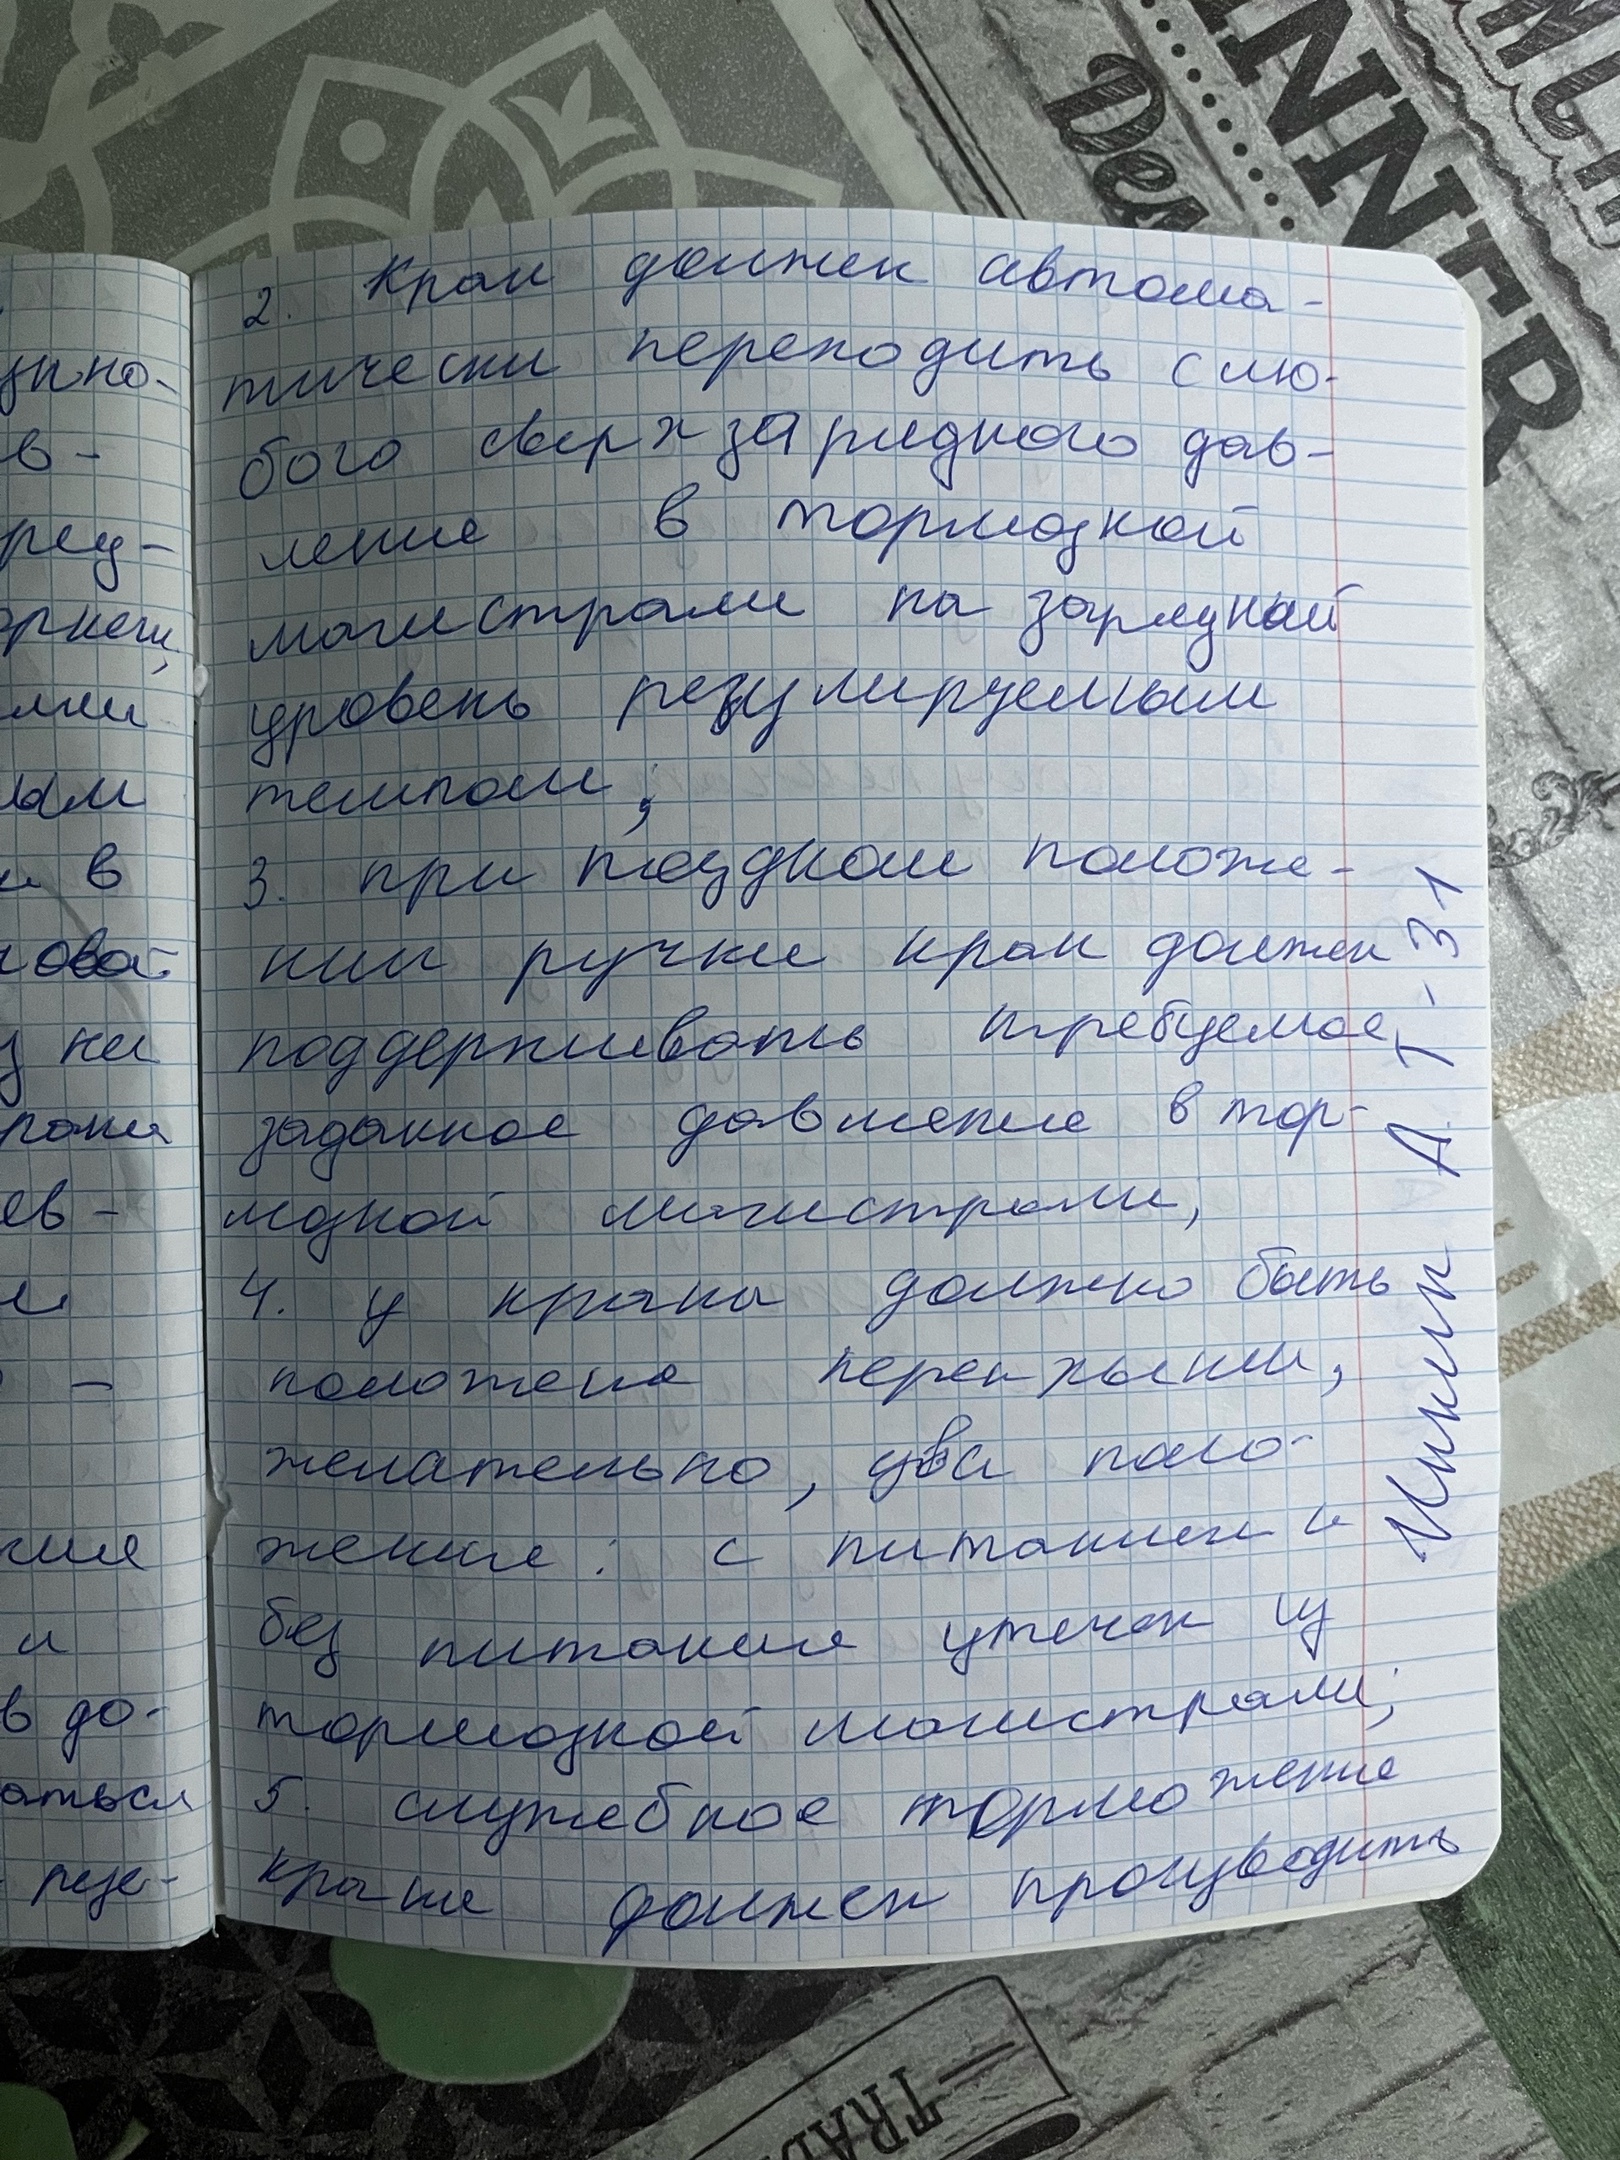 2. Кран должен автома-
тически переходить с лю-
бого сверхзарядного дав-
ление в тормозной
магистрали на зарядный
уровень регулируемым
темпом;
3. при поездном положе-
нии ручки кран должен
поддерживать требуемое
заданное давление в тор-
мозной магистрали;
4. у крана должно быть
положена перекрыши,
желательно, два поло-
жение: с питанием и
без питания утечек из
тормозной магистрали;
5. служебное торможение
кране должен производить
Шикин А. Т-31
в-
ым
и в
у на
ев-
и
в до-
аться
DINNER
TRAD